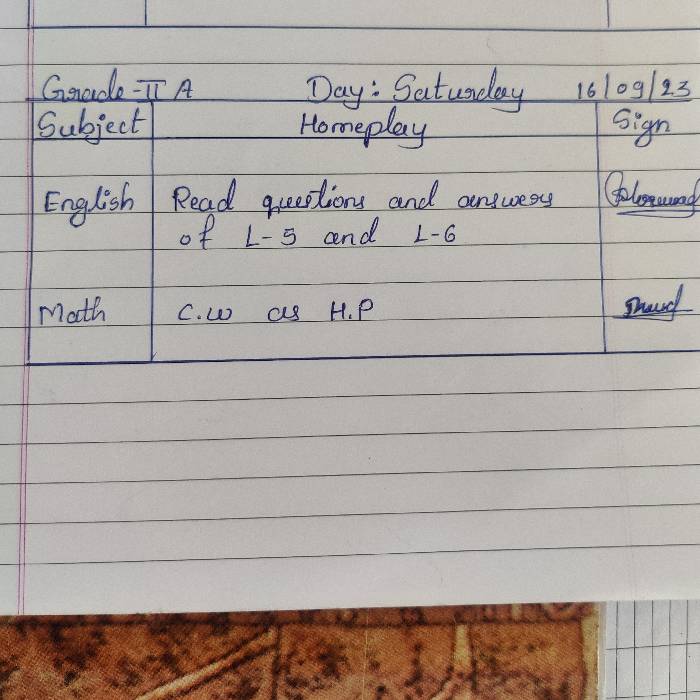 Grade-II A Day: Saturday 16/09/23
Subject Homeplay Sign
English Read questions and answers
of L-5 and L-6
Math C.W as H.P